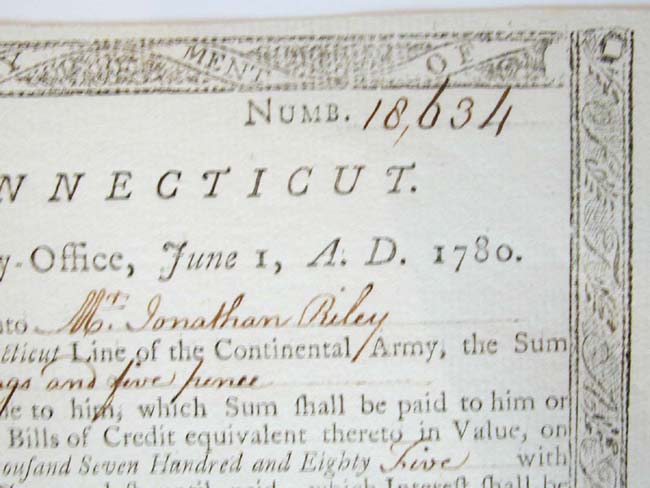 Y MENT OF
NUMB. 18,634
NNECTICUT.
y-Office, June 1, A. D. 1780.
nto Mr. Jonathan Riley
cticut Line of the Continental Army, the Sum
ngs and five pence
ue to him, which Sum ſhall be paid to him or
Bills of Credit equivalent thereto in Value, on
ouſand Seven Hundred and Eighty Five with
which Intereſt ſhall be